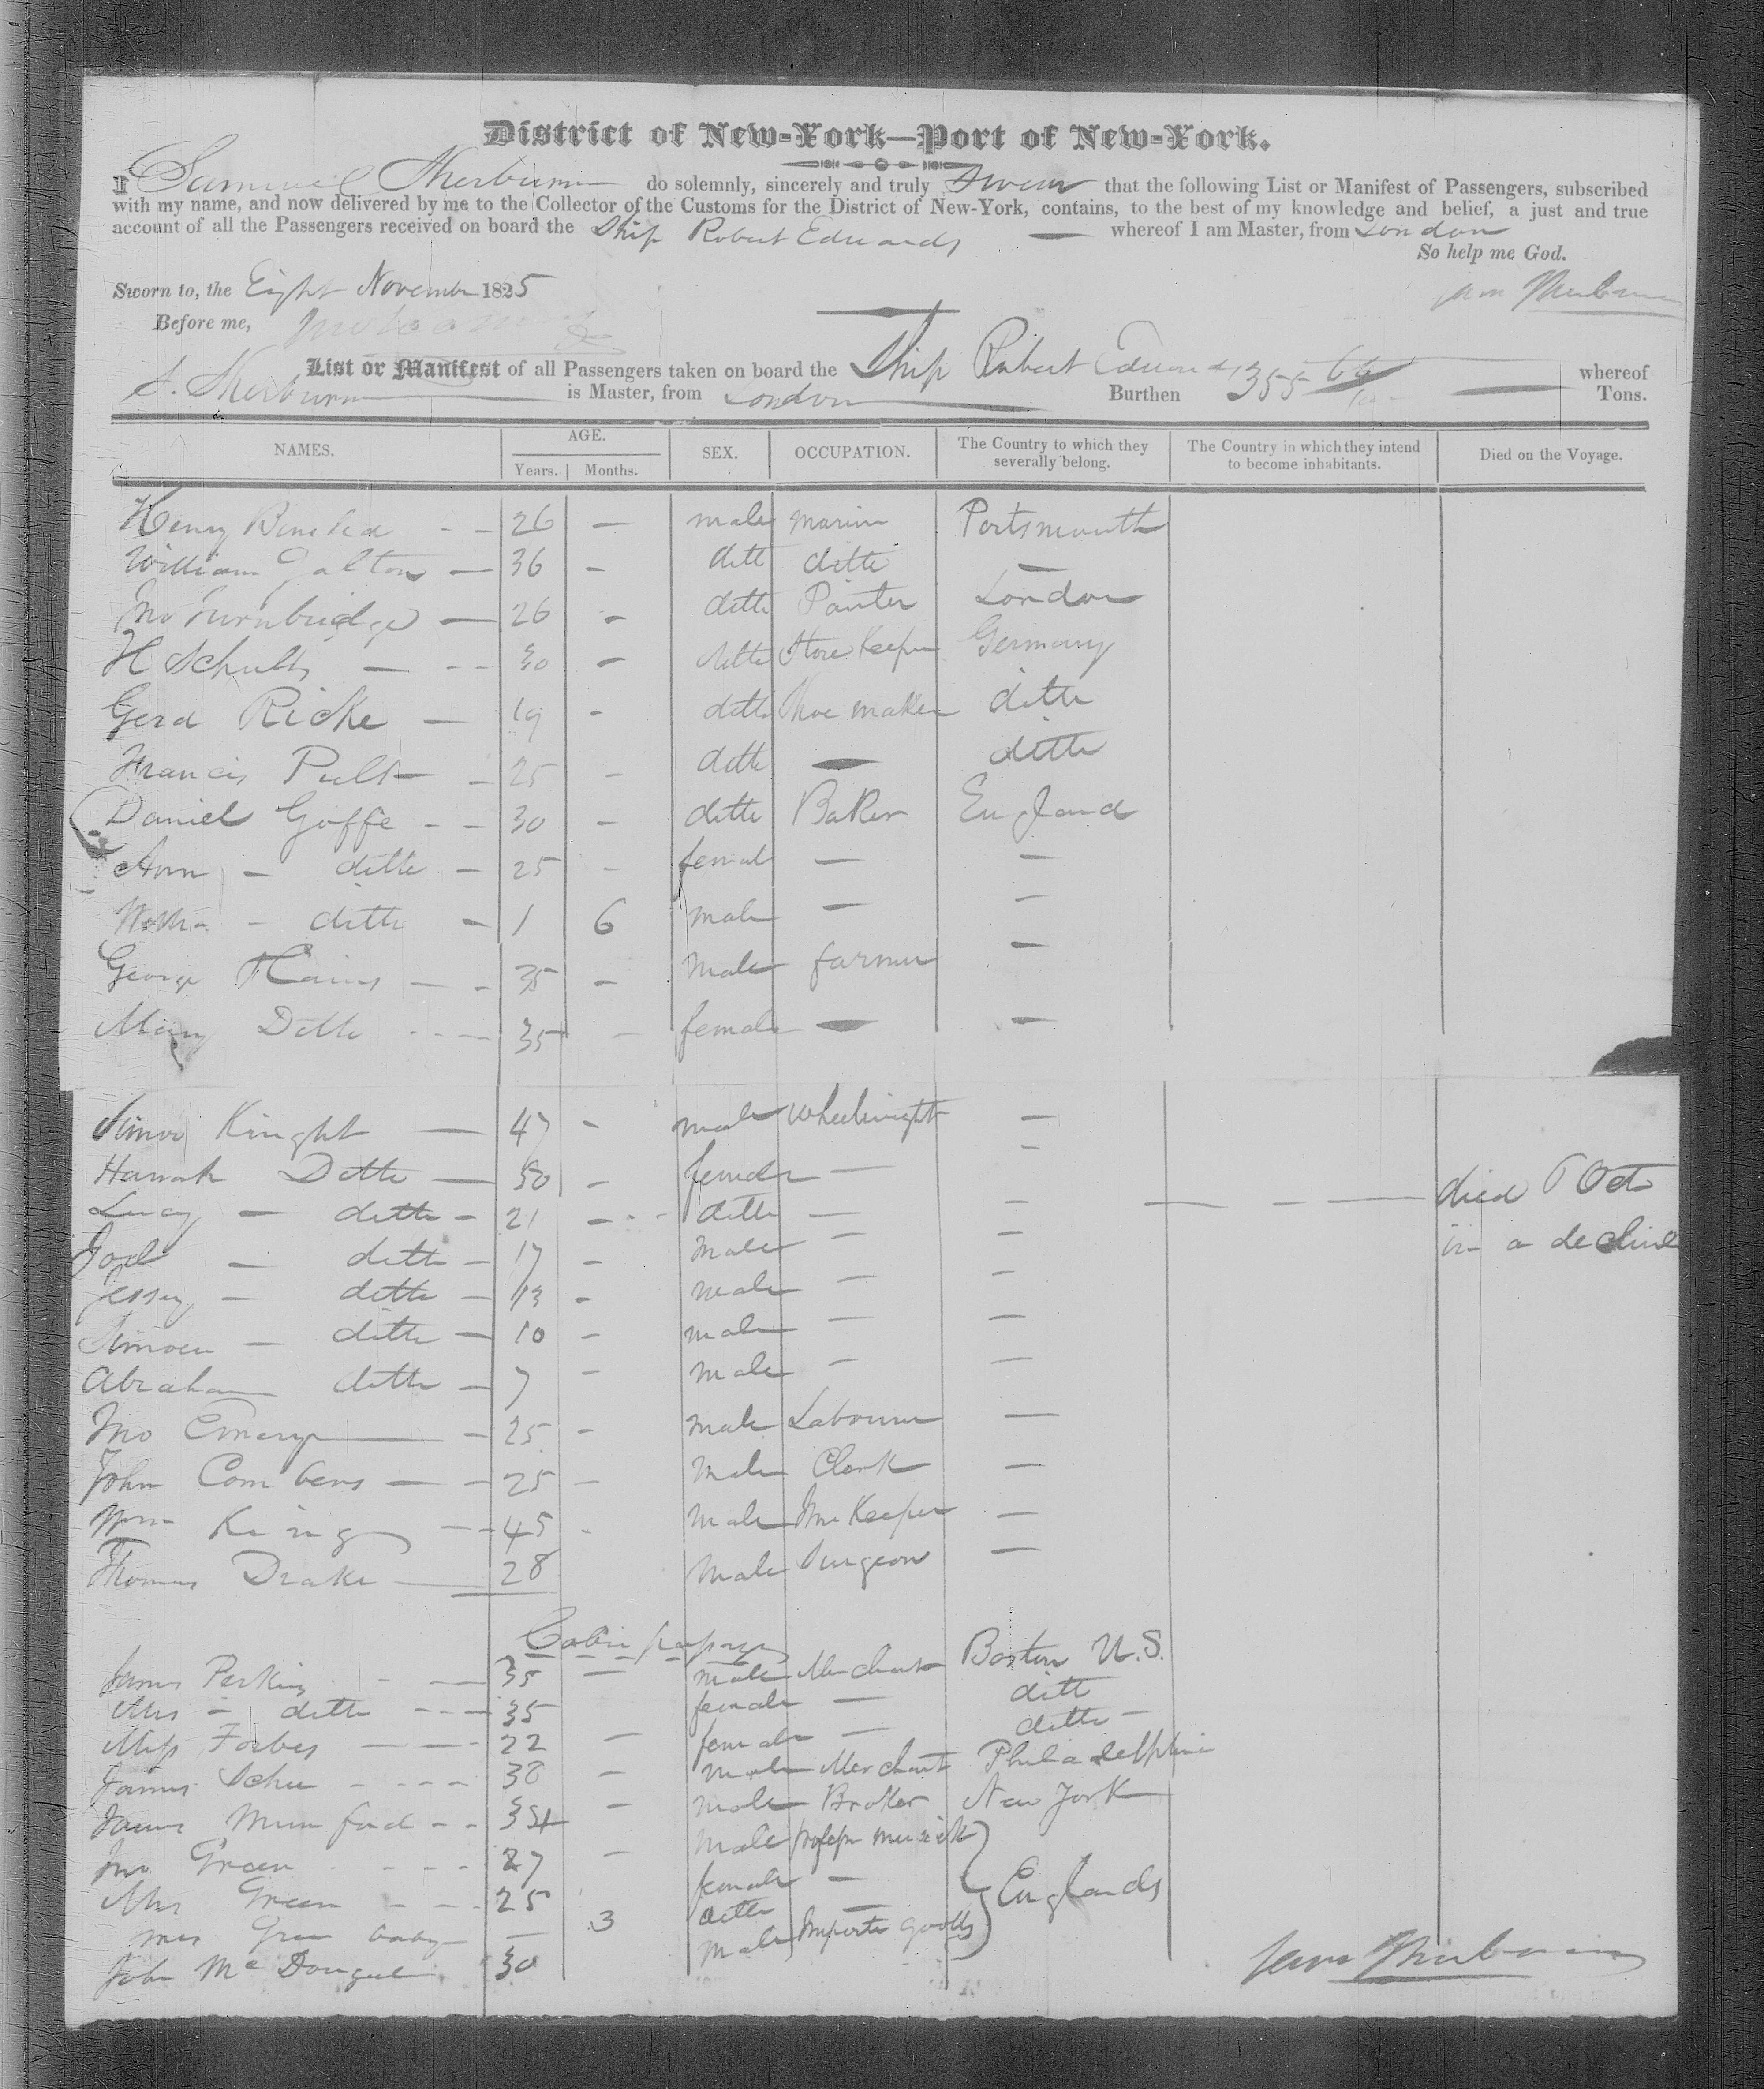 District of New-York—Port of New-York.
I Samuel Sherburn do solemnly, sincerely and truly swear that the following List or Manifest of Passengers, subscribed
with my name, and now delivered by me to the Collector of the Customs for the District of New-York, contains, to the best of my knowledge and belief, a just and true
account of all the Passengers received on board the Ship Robert Edwards — whereof I am Master, from London
So help me God.
Sworn to, the Eight November 1825
Before me,
List or Manifest of all Passengers taken on board the Ship Robert Edwards whereof
S. Sherburn is Master, from London Burthen 355 Tons.
NAMES. AGE. Years. Months. SEX. OCCUPATION. The Country to which they severally belong. The Country in which they intend to become inhabitants. Died on the Voyage.
Henry - - 26 — male Portsmouth
William Galton — 36 - ditt ditto —
Jno Turnbridge — 26 - ditto Painter London
H Schults — -- 30 - ditto Store Keeper Germany
Gerd Ricke — 19 - ditto Shoe maker ditto
Francis - 25 - ditto — ditto
Daniel Goffe - - 30 - ditto Baker England
Ann - ditto - 25 - female — —
- ditto - 1 6 male — —
George - - 35 - male farmer —
Mary Ditto --- 35 - female — —
Knight — 47 - male wheelwright —
Hannah Ditto — 50 - female — —
Lucy - ditto - 21 - ditto — — — - - — died 6 Oct
Joel - ditto - 17 - male — — in a decline
Jessy - ditto - 13 - male — —
- ditto - 10 - male — —
Abraham ditto - 7 - male — —
Jno Emery — - 25 - male Labourer —
John Combens — - 25 - male Clerk —
Wm King -- 45 - male Inn Keeper —
Thomas Drake — 28 male Surgeon —
Cabin
James Perkins - -- 35 — male Merchant Boston U.S.
Mrs - ditto --- 35 female — ditt
Miss Forbes — -- 22 — female — ditto -
James - - - - 38 - male Merchant Philadelphia
Mumford - - 35 - male Broker New York
Jno Green - - - - 27 - male musick
Mrs Green - - - 25 female — England
Green baby - — 3 ditto —
John McDougal 30 male goods